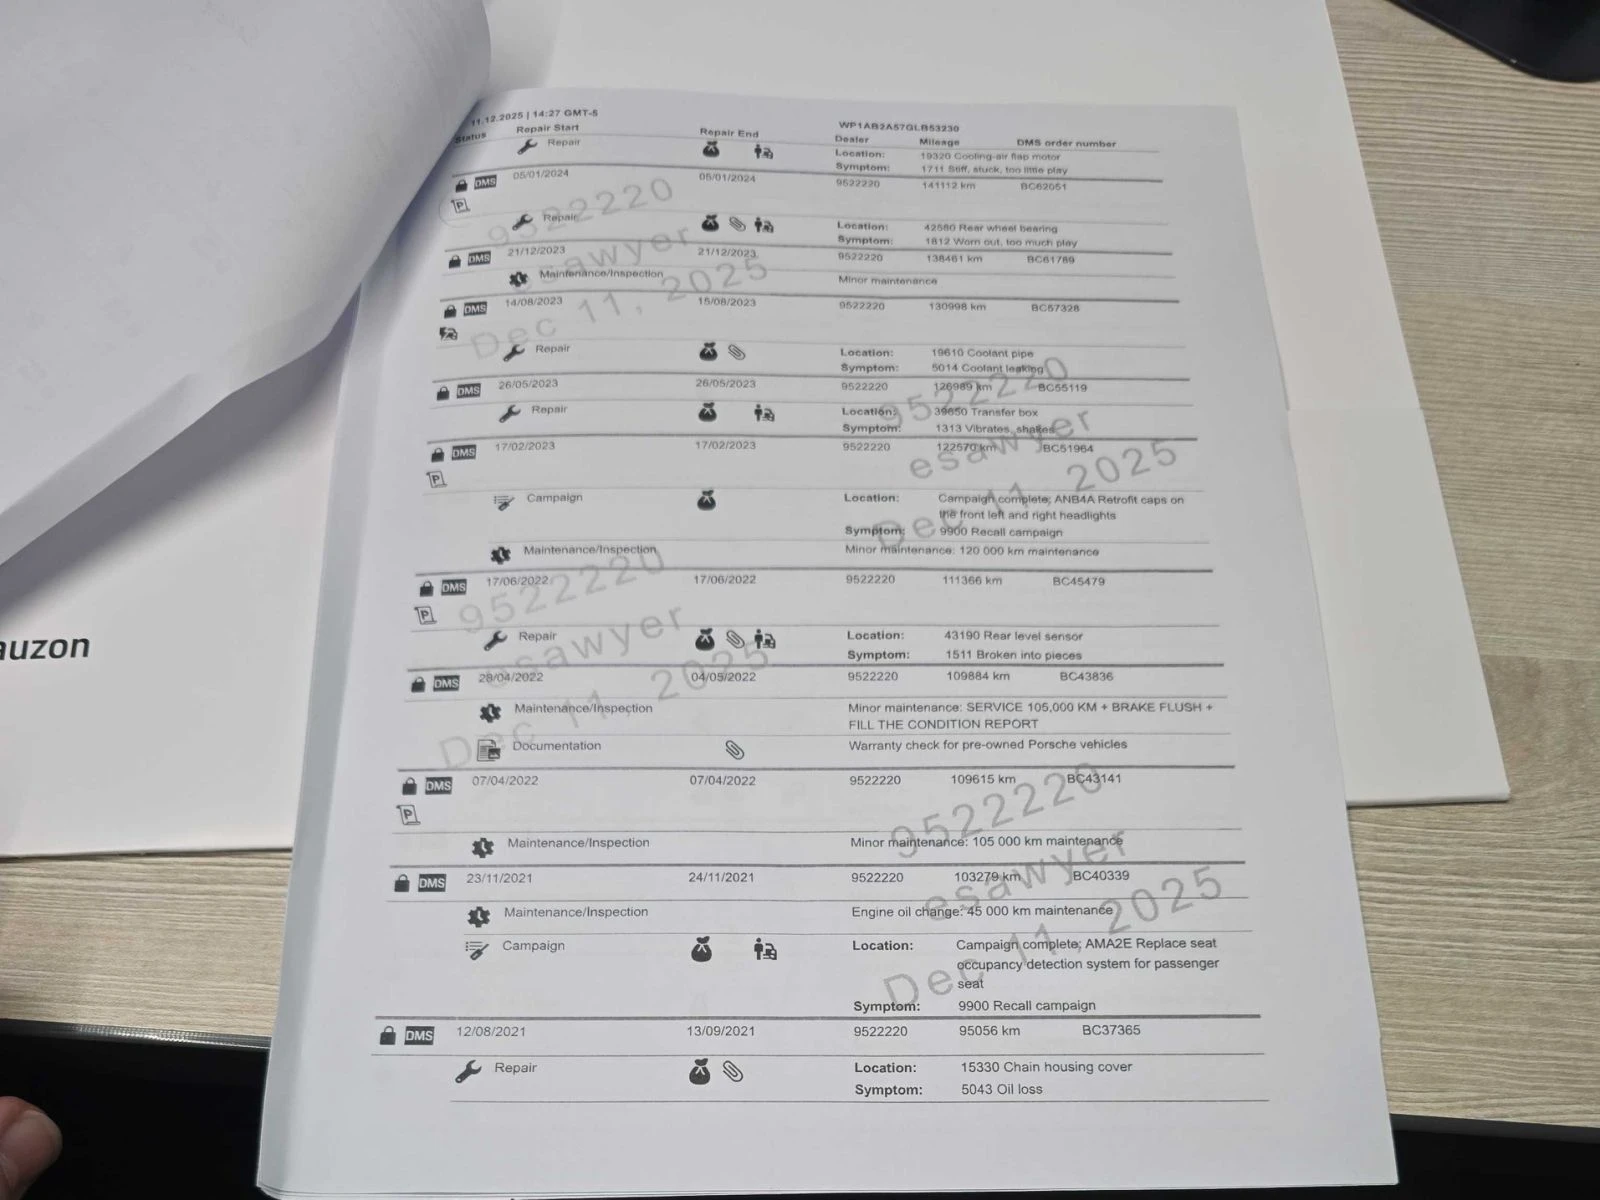 11.12.2025 | 14:27 GMT-5 WP1AB2A57GLB53230
Status Repair Start Repair End Dealer Mileage DMS order number
Repair Location: 19320 Cooling-air flap motor
Symptom: 1711 Stiff, stuck, too little play
DMS 05/01/2024 05/01/2024 9522220 141112 km BC62051
P
Repair Location: 42580 Rear wheel bearing
Symptom: 1812 Worn out, too much play
DMS 21/12/2023 21/12/2023 9522220 138461 km BC61789
Maintenance/Inspection Minor maintenance
DMS 14/08/2023 15/08/2023 9522220 130998 km BC57328
Repair Location: 19610 Coolant pipe
Symptom: 5014 Coolant leaking
DMS 26/05/2023 26/05/2023 9522220 126989 km BC55119
Repair Location: 39650 Transfer box
Symptom: 1313 Vibrates, shakes
DMS 17/02/2023 17/02/2023 9522220 122570 km BC51964
P
Campaign Location: Campaign complete; ANB4A Retrofit caps on
the front left and right headlights
Symptom: 9900 Recall campaign
Maintenance/Inspection Minor maintenance: 120 000 km maintenance
DMS 17/06/2022 17/06/2022 9522220 111366 km BC45479
P
Repair Location: 43190 Rear level sensor
Symptom: 1511 Broken into pieces
DMS 28/04/2022 04/05/2022 9522220 109884 km BC43836
Maintenance/Inspection Minor maintenance: SERVICE 105,000 KM + BRAKE FLUSH +
FILL THE CONDITION REPORT
Documentation Warranty check for pre-owned Porsche vehicles
DMS 07/04/2022 07/04/2022 9522220 109615 km BC43141
P
Maintenance/Inspection Minor maintenance: 105 000 km maintenance
DMS 23/11/2021 24/11/2021 9522220 103279 km BC40339
Maintenance/Inspection Engine oil change: 45 000 km maintenance
Campaign Location: Campaign complete; AMA2E Replace seat
occupancy detection system for passenger
seat
Symptom: 9900 Recall campaign
DMS 12/08/2021 13/09/2021 9522220 95056 km BC37365
Repair Location: 15330 Chain housing cover
Symptom: 5043 Oil loss
9522220
esawyer
Dec 11, 2025
9522220
esawyer
Dec 11, 2025
9522220
esawyer
Dec 11, 2025
9522220
esawyer
Dec 11, 2025
auzon